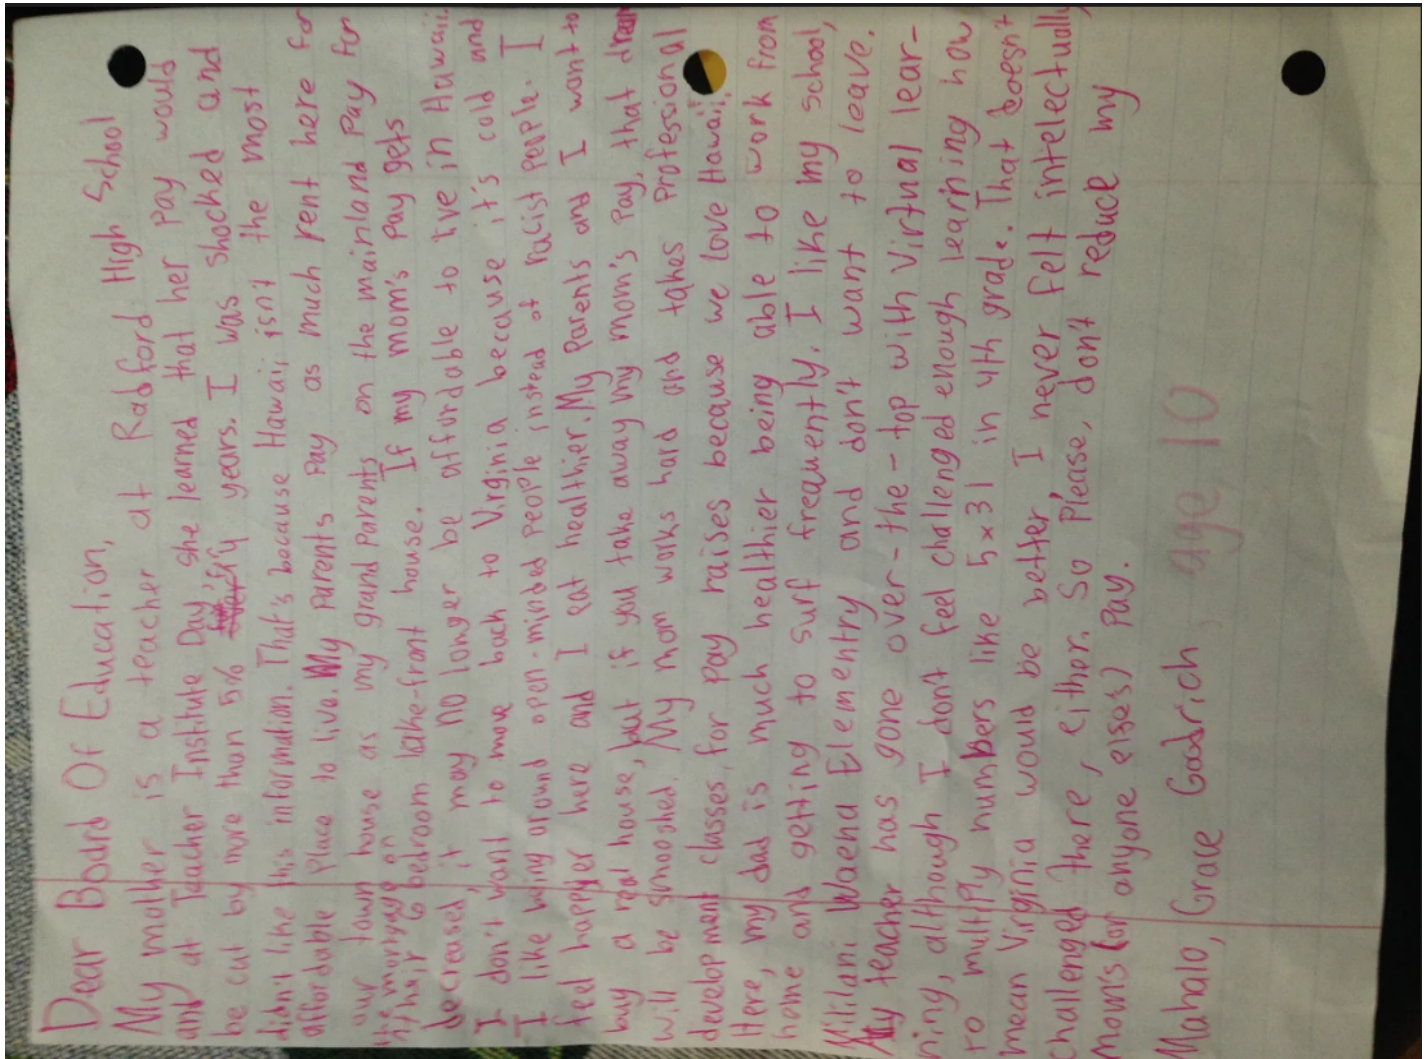 Dear Board Of Education,
My mother is a teacher at Radford High School
and at Teacher Institute Day, she learned that her pay would
be cut by more than 5% for 4 years. I was shocked and
didn't like this information. That's because Hawaii isn't the most
affordable place to live. My parents pay as much rent here for
our town house as my grandparents on the mainland pay for
the mortgage on
their 6 bedroom lake-front house. If my mom's pay gets
decreased, it may no longer be affordable to live in Hawaii.
I don't want to move back to Virginia because it's cold and
I like being around open-minded people instead of racist people. I
feel happyer here and I eat healthier. My parents and I want to
buy a real house, but if you take away my mom's pay, that dream
will be smooshed. My mom works hard and takes professional
development classes, for pay raises because we love Hawaii.
Here, my dad is much healthier being able to work from
home and getting to surf frequently. I like my school,
Mililani Waena Elementry and don't want to leave.
My teacher has gone over-the-top with Virtual lear-
ning, although I don't feel challenged enough learning how
to multiply numbers like 5x31 in 4th grade. That doesn't
mean Virginia would be better, I never felt intelectually
challenged there, either. So Please, don't reduce my
mom's (or anyone elses) pay.
Mahalo, Grace Goodrich, age 10